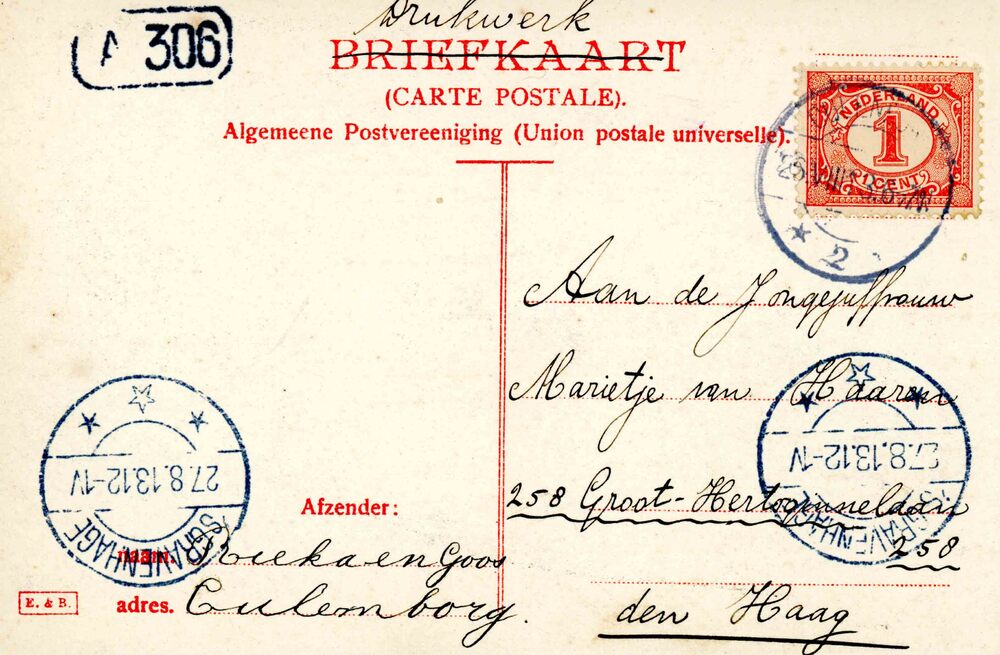 A 306
Drukwerk
BRIEFKAART
(CARTE POSTALE).
Algemeene Postvereeniging (Union postale universelle).
NEDERLAND
1
1 CENT
2
Aan de Jongejuffrouw
Marietje van Haaren
258 Groot-Hertoginnelaan
258
den Haag
27.8.13.12-1V
'S GRAVENHAGE
27.8.13.12-1V
'S GRAVENHAGE
Afzender:
naam. en Goos
adres. Culemborg.
E. & B.